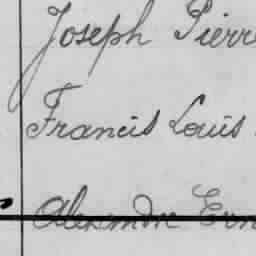 Joseph Pierre
Francis Louis
Alexandre Ern